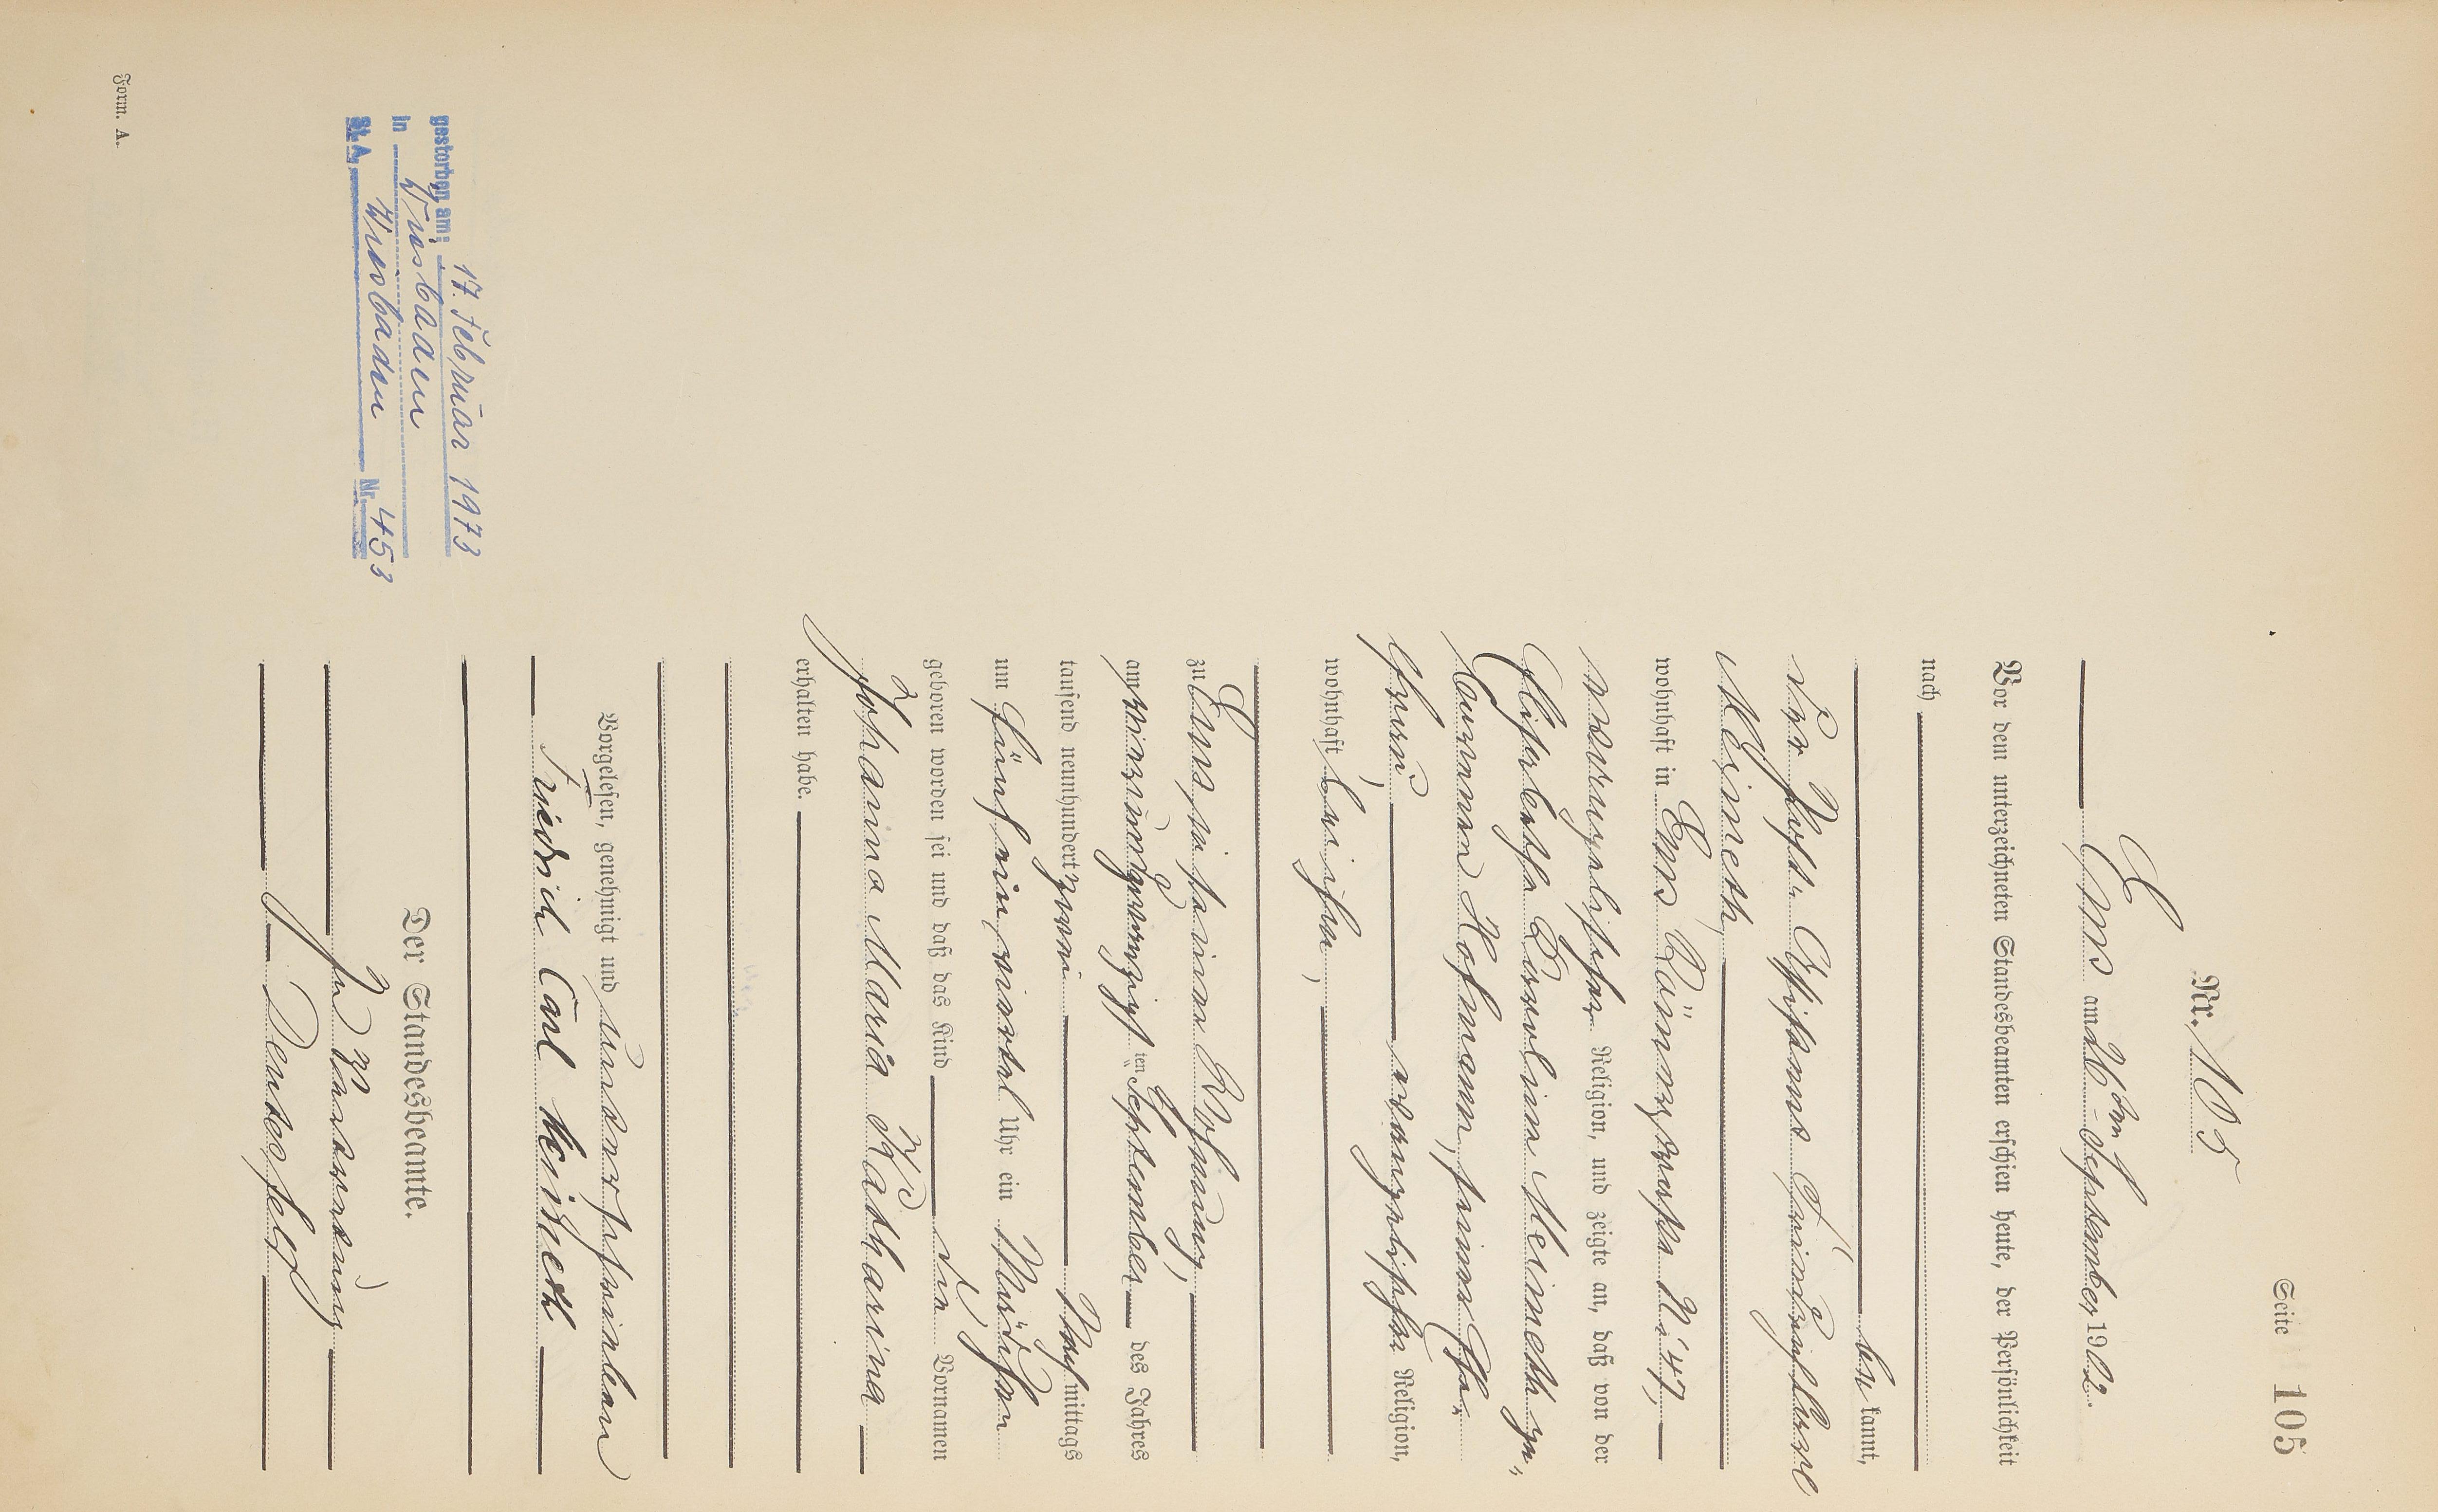 Seite 105
Nr. 105
Ems am 26ten September 1902.
Vor dem unterzeichneten Standesbeamten erschien heute, der Persönlichkeit
nach
be kannt,
der Post-Assistent Friedrich Carl
Meineth,
wohnhaft in Ems Römerstraße N: 47,
evangelischer Religion, und zeigte an, daß von der
Elisabetha Karoline Meineth ge-
borenen Hofmann, seiner Ehe-
frau, evangelischer Religion,
wohnhaft bei ihm,
zu Ems, in seiner Wohnung,
am vierundzwanzigsten September des Jahres
tausend neunhundert zwei Nachmittags
um fünf ein viertel Uhr ein Mädchen
geboren worden sei und daß das Kind die Vornamen
Johanna Maria Katharina
erhalten habe.
Vorgelesen, genehmigt und unterschrieben
Friedrich Carl Meineth
Der Standesbeamte.
In Vertretung
gestorben am: 17. Februar 1973
in Wiesbaden
St. A. Wiesbaden Nr. 453
Form. A.